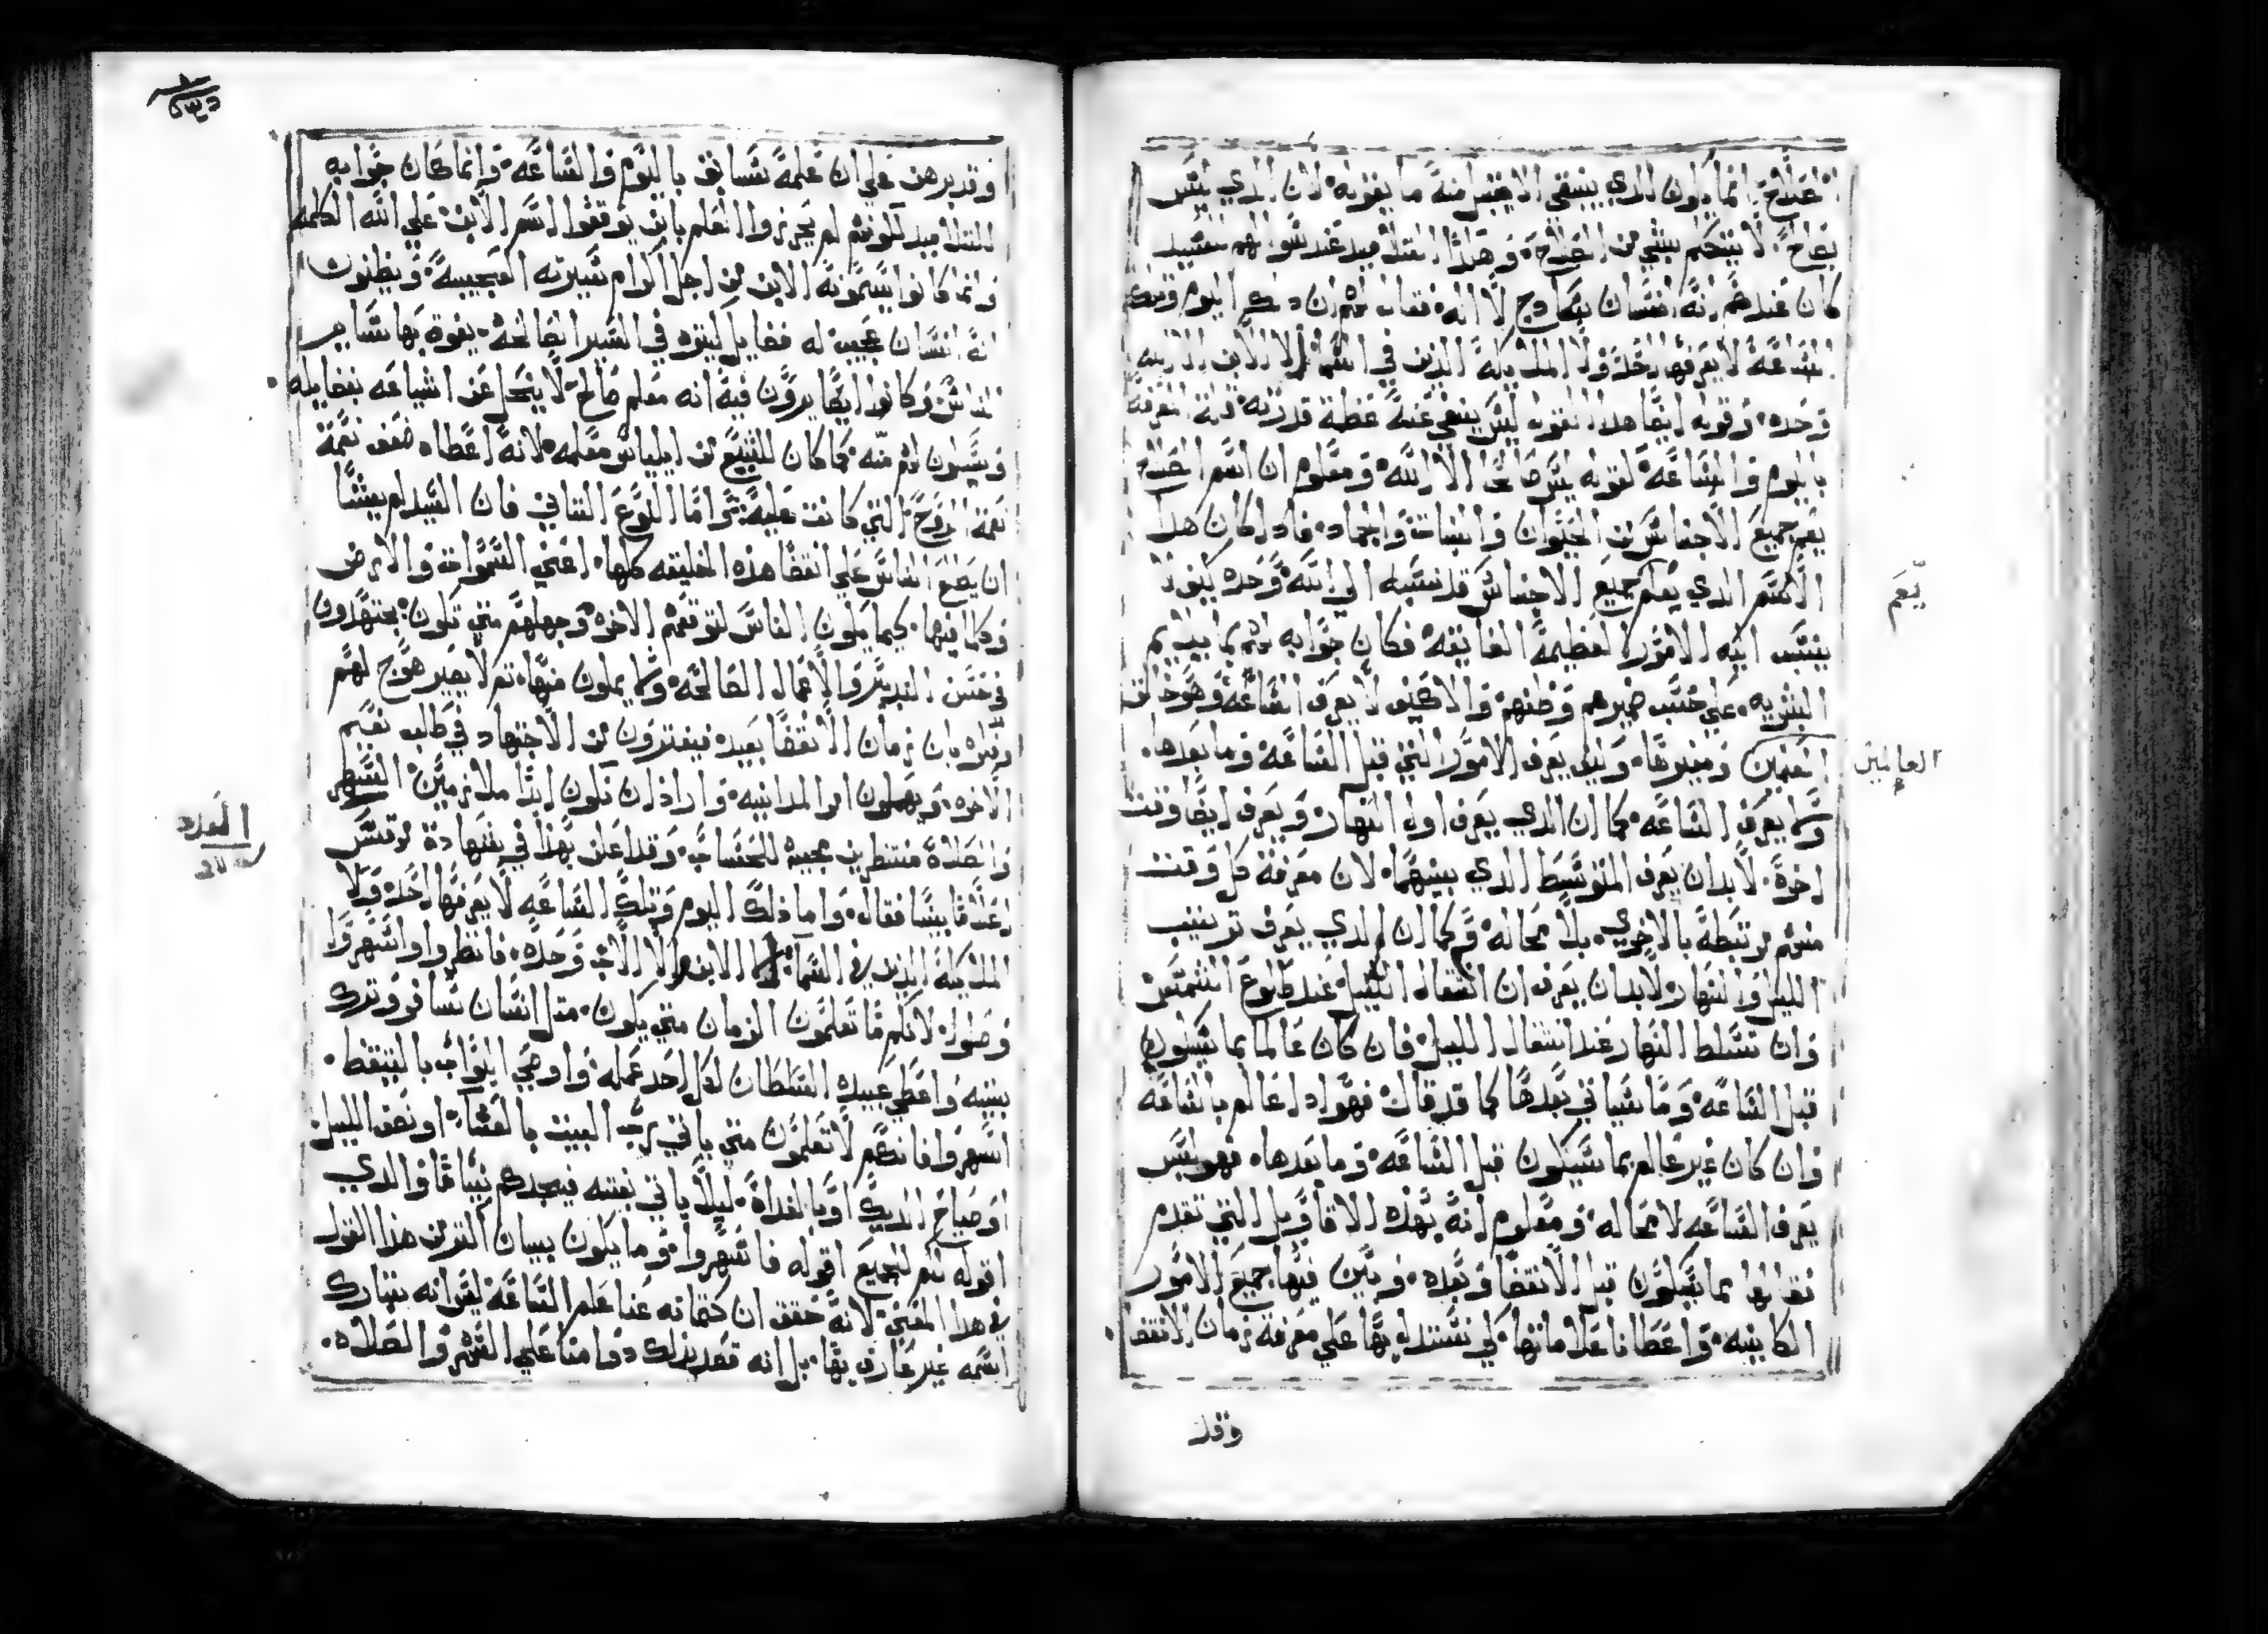 الصلاح انما يكون الدي ينبغي الا يقبل منه ما يقوله لان الدي ليس
بصالح لا يتكلم بشي من الصلاح وهكذا التلاميد عند سوالهم للسيد
كان عندهم انه انسان سادج لا اله فقال لهم ان دلك اليوم وتلك
الساعه لا يعرفها احد ولا الملايكة الذين في السما ولا الابن الا الاب
وحده وقوله ايضا هدا القول ليس ينفي عنه عظة قدرته المعرفة
باليوم والساعة لقوله ليس صالحا الا الله ومعلوم ان اسم الصلاح
يعم جميع الاجناس من الحيوان والنبات والجماد فادا كان هدا
الاسم الدي يعم جميع الاجناس قد نسبه الي الله وحده
ينسب اليه الامور العظيمة الفايقة فكان جوابه لهم بما يليق بهم
البشريه علي حسب ضميرهم وظنهم والا كيف لا يعرف الساعة وهو خالق
العالمين ومنيرها وكيف يعرف الامور التي قبل الساعه وما بعدها
ولا يعرف الساعه كما ان الدي يعرف اول النهار ويعرف ايضا وقت
اخرة لابد ان يعرف المتوسط الدي بينهما لان معرفة كل وقت
منهم مرتبطة بالاخري بلا محاله وكما ان الدي يعرف ترتيب
الليل والنهار لابد ان يعرف ان انتقال الليل عند طلوع الشمس
وان تسلط النهار عند انتقال الليل فان كان عالما بما سيكون
قبل الساعة وما سياتي بعدها كما قد قال فهو ادا عالم بالساعه
وان كان غير عالم بما سيكون قبل الساعه وما بعدها فهو ليس
يعرف الساعه لا محاله ومعلوم انه بهذه الاقاويل التي تقدم
فقالها بما سيكون قبل الانقضا وبعده وبين فيها جميع الامور
الكاينه واعطانا علاماتها لكي نستدل بها علي معرفة زمان الانقضا
يعم
العالمين
وقد
وقد برهن علي ان علمه سابق باليوم والساعه وانما كان جوابه
للتلاميد لكونهم لم يحرزوا العلم بان يوقعوا اسم الابن علي الله الكلمه
وانما كانوا يسمونه الابن من اجل اكرام سيرته العجيبه ويظنون
انه انسان عجيب له فضايل كثيره في السير الصالحة يفوق بها ساير
الناس وكانوا ايضا يرون فيه انه معلم صالح لا يبخل عن اشياعه بفضايله
ويسلون لهم منه كما كان لليشع من ايلياس معلمه لانه اعطاه ضعف نعمة
نعمة الروح التي كانت عليه واما النوع التاني فان السيد لم يشا
ان يطلع الناس علي انقضا هذه الخليقه كلها اعني السموات والارض
وكلما فيها كيما يكون الناس لتوقعهم الاخره وجهلهم متي تكون يجتهدون
في حسن التدبير والاعمال الصالحه ولا يملون منها تم لا يصير هو حج لهم
وقوله بان زمان الانقضا بعيد فيفترون من الاجتهاد في طلب نعيم
الاخره ويميلون الي الدانيه واراد ان نكون ابدا ملازمين السهر
والصلاة منتظرين مجيه للحساب وقد اعلن بهذا في شهادة مرقس
اعلانا بينا فقال واما ذلك اليوم وتلك الساعه لا يعرفها احد ولا
الملايكة الذين في السما ولا الابن الا الاب وحده فانظروا واسهروا
وصلوا لانكم ما تعلمون الزمان متي يكون متل انسان سافر وترك
بيته واعطي عبيده السلطان لكل احد عمله واوصي البواب بالتيقظ
اسهروا فانكم لا تعلمون متي ياتي رب البيت بالعشاء او نصف الليل
او صياح الديك او بالغداة ليلا ياتي بغته فيجدكم نياما والدي
اقوله لكم للجميع اقوله فاسهروا وما يكون ببيان اكتر من هدا القول
في هدا المعني لانه حقق ان كتمانه عنا علم الساعة ليس انه تبارك
اسمه غير عارف بها بل انه قصد بذلك دوامنا علي السهر والصلاه
العدد